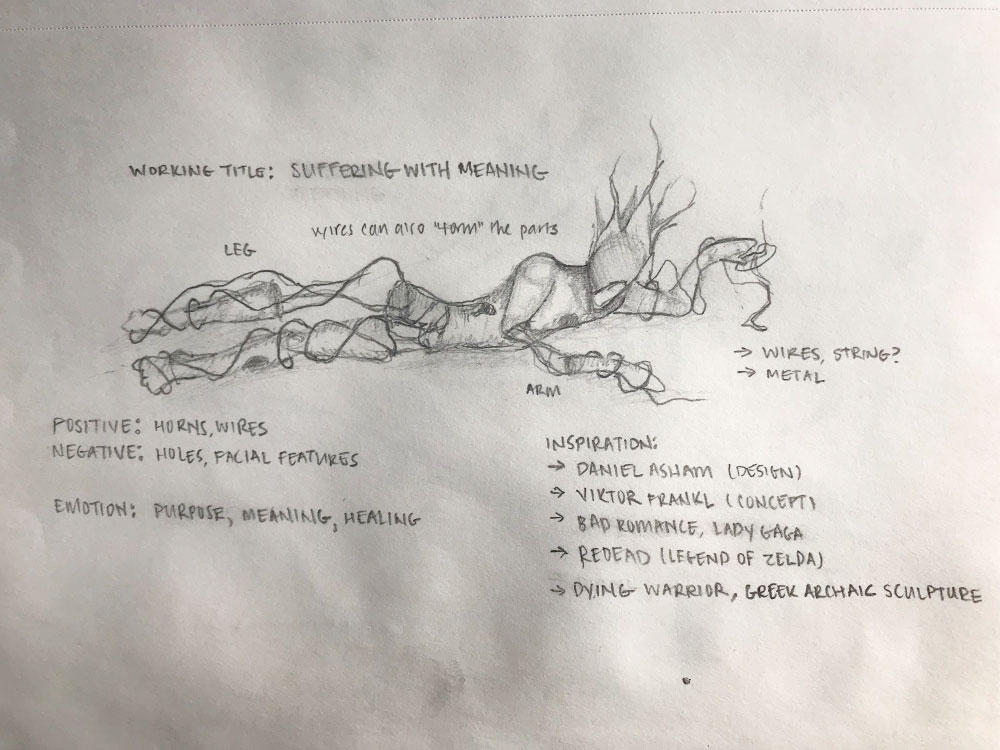 WORKING TITLE: SUFFERING WITH MEANING
wires can also "form" the parts
LEG
→ WIRES, STRING?
→ METAL
ARM
POSITIVE: HORNS, WIRES
NEGATIVE: HOLES, FACIAL FEATURES
EMOTION: PURPOSE, MEANING, HEALING
INSPIRATION:
→ DANIEL ASHAM (DESIGN)
→ VIKTOR FRANKL (CONCEPT)
→ BAD ROMANCE, LADY GAGA
→ REDEAD (LEGEND OF ZELDA)
→ DYING WARRIOR, GREEK ARCHAIC SCULPTURE